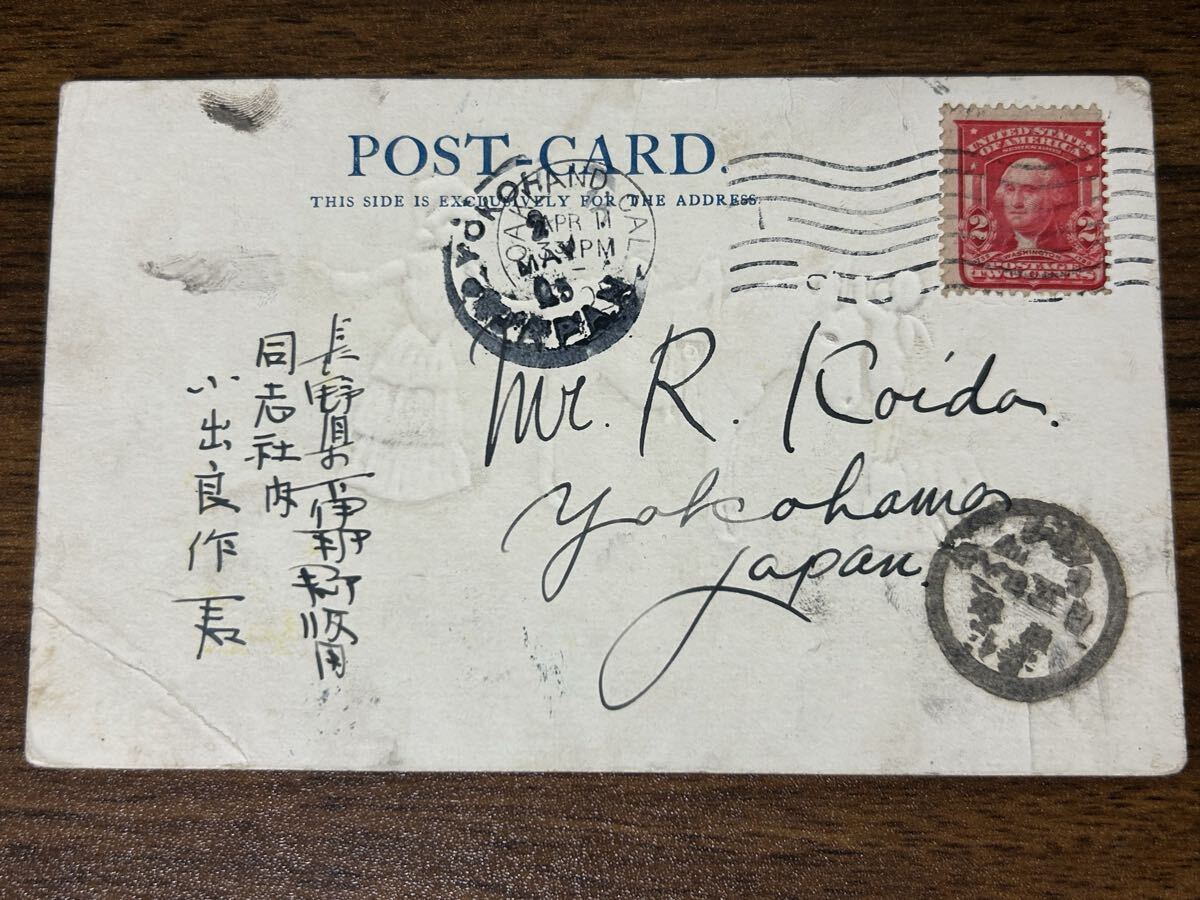 POST-CARD.
THIS SIDE IS EXCLUSIVELY FOR THE ADDRESS.
OAKLAND CAL
APR 11
PM
YOKOHAMA
2
MAY
05
JAPAN
UNITED STATES
OF AMERICA
2 2
WASHINGTON
POSTAGE
TWO CENTS
Mr. R. Koida.
Yokohama
Japan.
長野県上伊那郡坂
同志社内
小出良作君